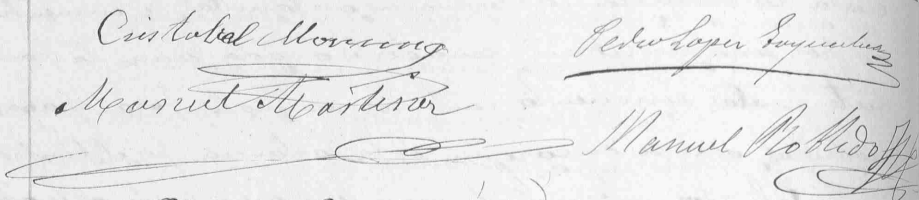 Cristobal Moreno
Pedro Lopez
Manuel Martinez
Manuel Robledo